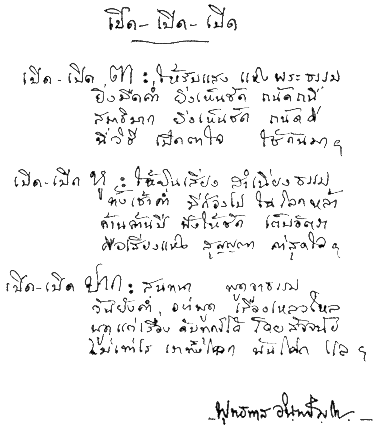 เปิด-เปิด-เปิด
เปิด-เปิด ตา : ให้รับแสง แห่งพระธรรม
ยิ่งมืดค่ำ ยิ่งเห็นชัด ถนัดถนี่
สมาธิมาก ยิ่งเห็นชัด ถนัดดี
นี่วิธี เปิดตาใจ ใช้กันมา ฯ
เปิด-เปิด หู : ให้ยินเสียง สำเนียงธรรม
ทั้งเช้าค่ำ มีก้องไป ในโลกหล้า
ล้านล้านปี ฟังให้ชัด เต็มอัตรา
คือเสียงแห่ง สุญญตา ค่าสุดใจ ฯ
เปิด-เปิด ปาก : สนทนา พูดจาธรรม
วันยังค่ำ อย่าพูด เรื่องเหลวไหล
พูดแต่เรื่อง ดับทุกข์ได้ โดยสัจจนัย
ไม่เท่าไร เราทั้งโลก พ้นโศก แล ฯ
พุทธทาส อินทปัญโญ